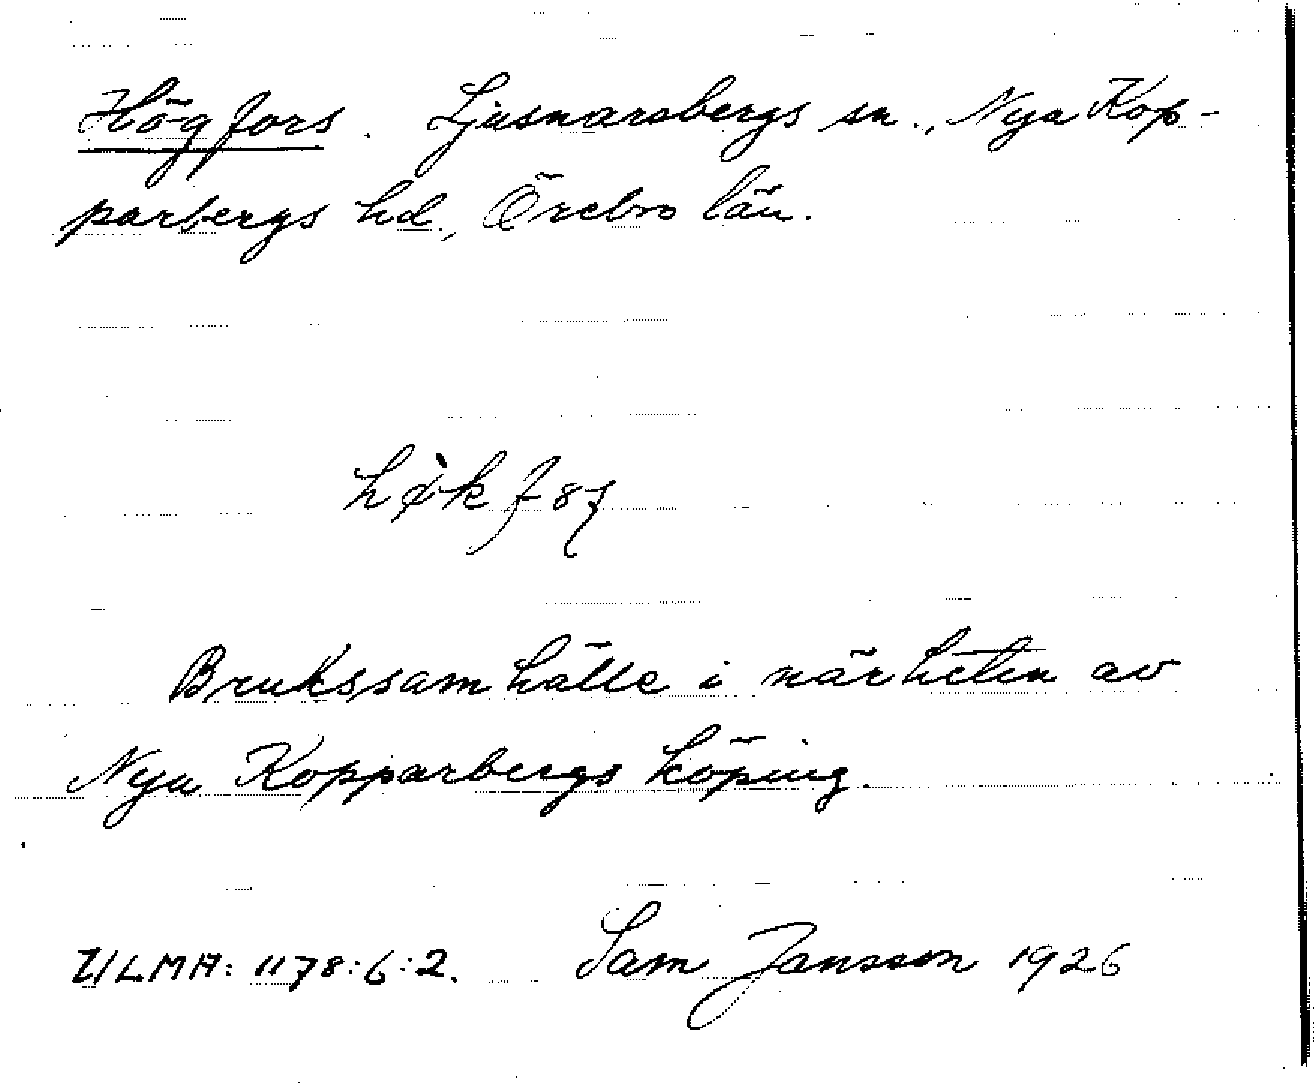 Högfors. Ljusnarsbergs sn., Nya Kop-
parbergs hd., Örebro län.
Brukssamhälle i närheten av
Nya Kopparbergs köping.
ULMA: 1178:6:2. Sam Jansson 1926